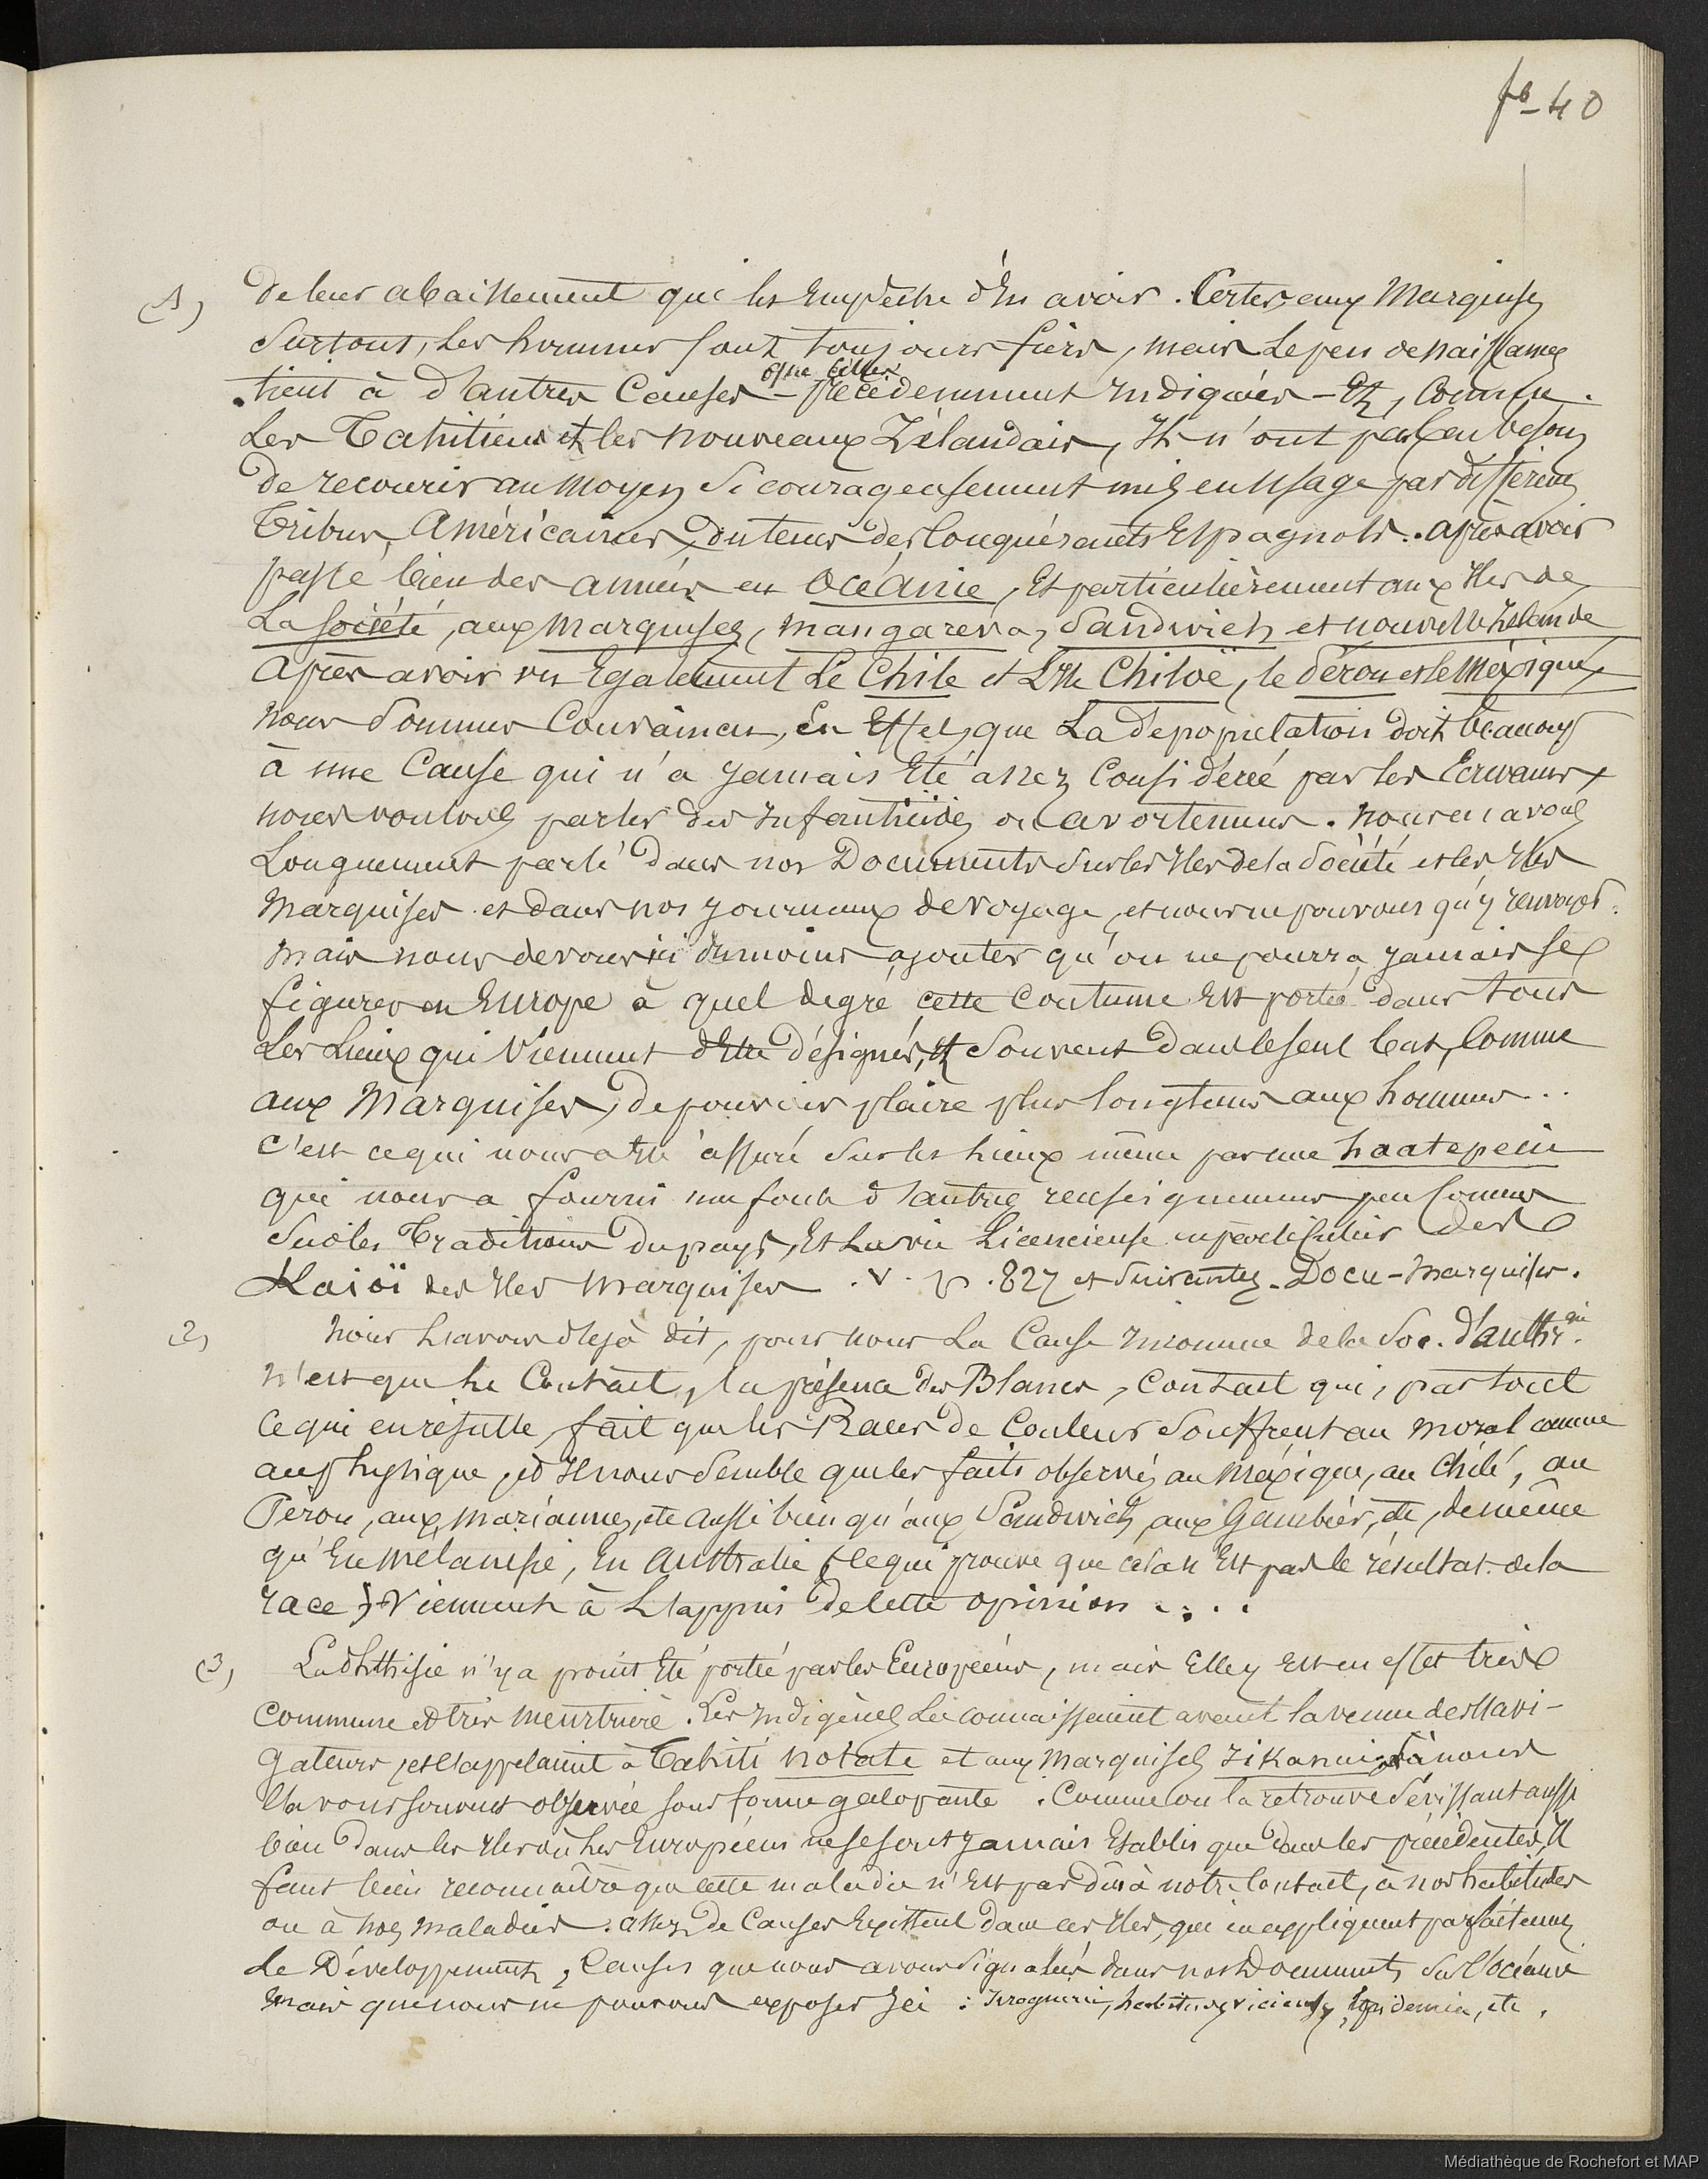 fo_40
(1) de leur abaissement qui les Empêche d'En avoir. Certes, aux Marquises
Surtout, les hommes sont toujours fiers, mais le peu de naissances
tient à d'autres Causes - que celles précédemment Indiquées - Et, Comme
Les Tahitiens et les nouveaux Zélandais, Ils n'ont pas eu besoin
de recourir au Moyen Si courageusement mis en Usage par différentes
Tribus Américaines, du tems des Conquérants Espagnols. après avoir
passé bien des années en Océanie, Et particulièrement aux Iles de
La Société, aux Marquises, Mangareva, Sandwich et nouvelle Zélande
après avoir vu Egalement Le Chile et L'Ile Chiloë, le Pérou et le Méxique,
nous Sommes Convaincus, En Effet, que La Dépopulation doit beaucoup
à une Cause qui n'a Jamais Eté assez Considérée par les Ecrivains
nous voulons parler des Infanticides ou avortemens. Nous en avons
Longuement parlé dans nos Documents Sur les Iles de la Société et les Iles
Marquises et dans nos Journaux de voyage, et nous ne pouvons qu'y renvoyer.
Mais nous devons ici du moins ajouter qu'on ne pourra Jamais se
figurer en Europe à quel degré cette Coutume Est portée dans tous
Les Lieux qui Viennent d'Etre désignés, et Souvent dans le seul but, Comme
aux Marquises, de pouvoir plaire plus longtems aux hommes...
C'est ce qui nous a Eté assuré Sur les Lieux même par une haatepeiu
qui nous a fourni une foule d'autres renseignemens peu Connus
Sur les Traditions du pays, Et La vie Licencieuse en particulier des
Kaioï des Iles Marquises. V. p. 827 et Suivantes - Docu - Marquises.
(2) Nous L'avons déjà dit, pour nous La Cause Inconnue de la Soc. d'anthr.gie
N'est que Le Contact, la présence des Blancs, Contact qui, par tout
Ce qui en résulte, fait que les Races de Couleur Souffrent au Moral comme
au physique, et Il nous Semble que les faits observés au Méxique, au Chilé, au
Pérou, aux Mariannes, etc aussi bien qu'aux Sandwich, aux Gambier, etc, de même
qu'En Mélanésie, En Australie (Ce qui prouve que cela n'Est pas le résultat de la
race) Viennent à L'appui de Cette Opinion ....
(3) La Phthisie n'y a point Eté portée par les Européens, mais Elle y Est en effet très
Commune et très Meurtrière. Les Indigènes La connaissaient avant la venue des Navi-
gateurs, et L'appelaient à Tahiti notate et aux Marquises Jikanui. Là nous
l'avons souvent observée sous forme galopante. Comme on la retrouve Sévissant aussi
bien dans les Iles où les Européens ne se sont Jamais Etablis que dans les précédentes, Il
faut bien reconnaître que cette maladie n'Est pas dûe à notre Contact, à nos habitudes
ou à nos maladies. Assez de Causes Existent dans ces Iles, qui en expliquent parfaitement
Le Développement, Causes que nous avons Signalées dans nos Documents Sur l'océanie
Mais que nous ne pouvons exposer Ici : Ivrognerie, habitudes vicieuses, Epidémies, etc.
Médiathèque de Rochefort et MAP